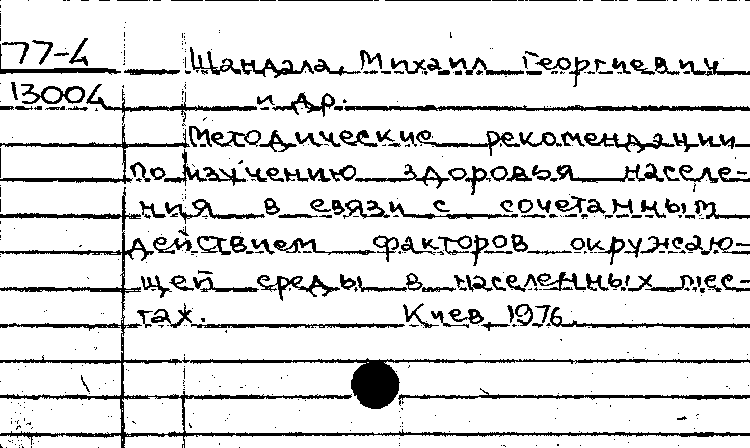 77-4 Шандала, Михаил Георгиевич
13004 и др.
Методические рекомендации
по изучению здоровья населе-
ния в связи с сочетанным
действием факторов окружаю-
щей среды в населенных мес-
тах. Киев, 1976.